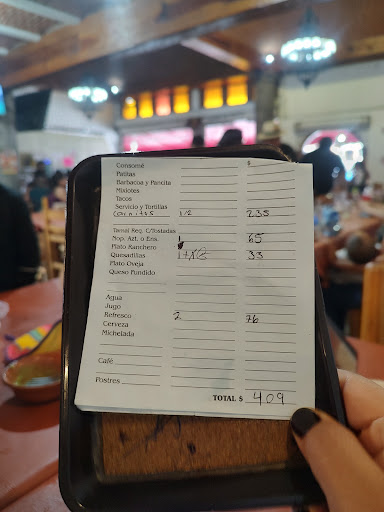 Consomé $
Patitas
Barbacoa y Pancita
Mixiotes
Tacos
Servicio y Tortillas
Carnitas 1/2 235
Tamal Reg. C/Tostadas
Nop. Azt. o Ens. 1 65
Plato Ranchero
Quesadillas 33
Plato Oveja
Queso Fundido
Agua
Jugo
Refresco 2 76
Cerveza
Michelada
Café
Postres
TOTAL $ 409